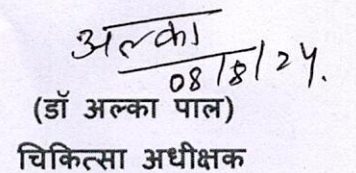 अल्का
08/8/24.
(डॉ अल्का पाल)
चिकित्सा अधीक्षक